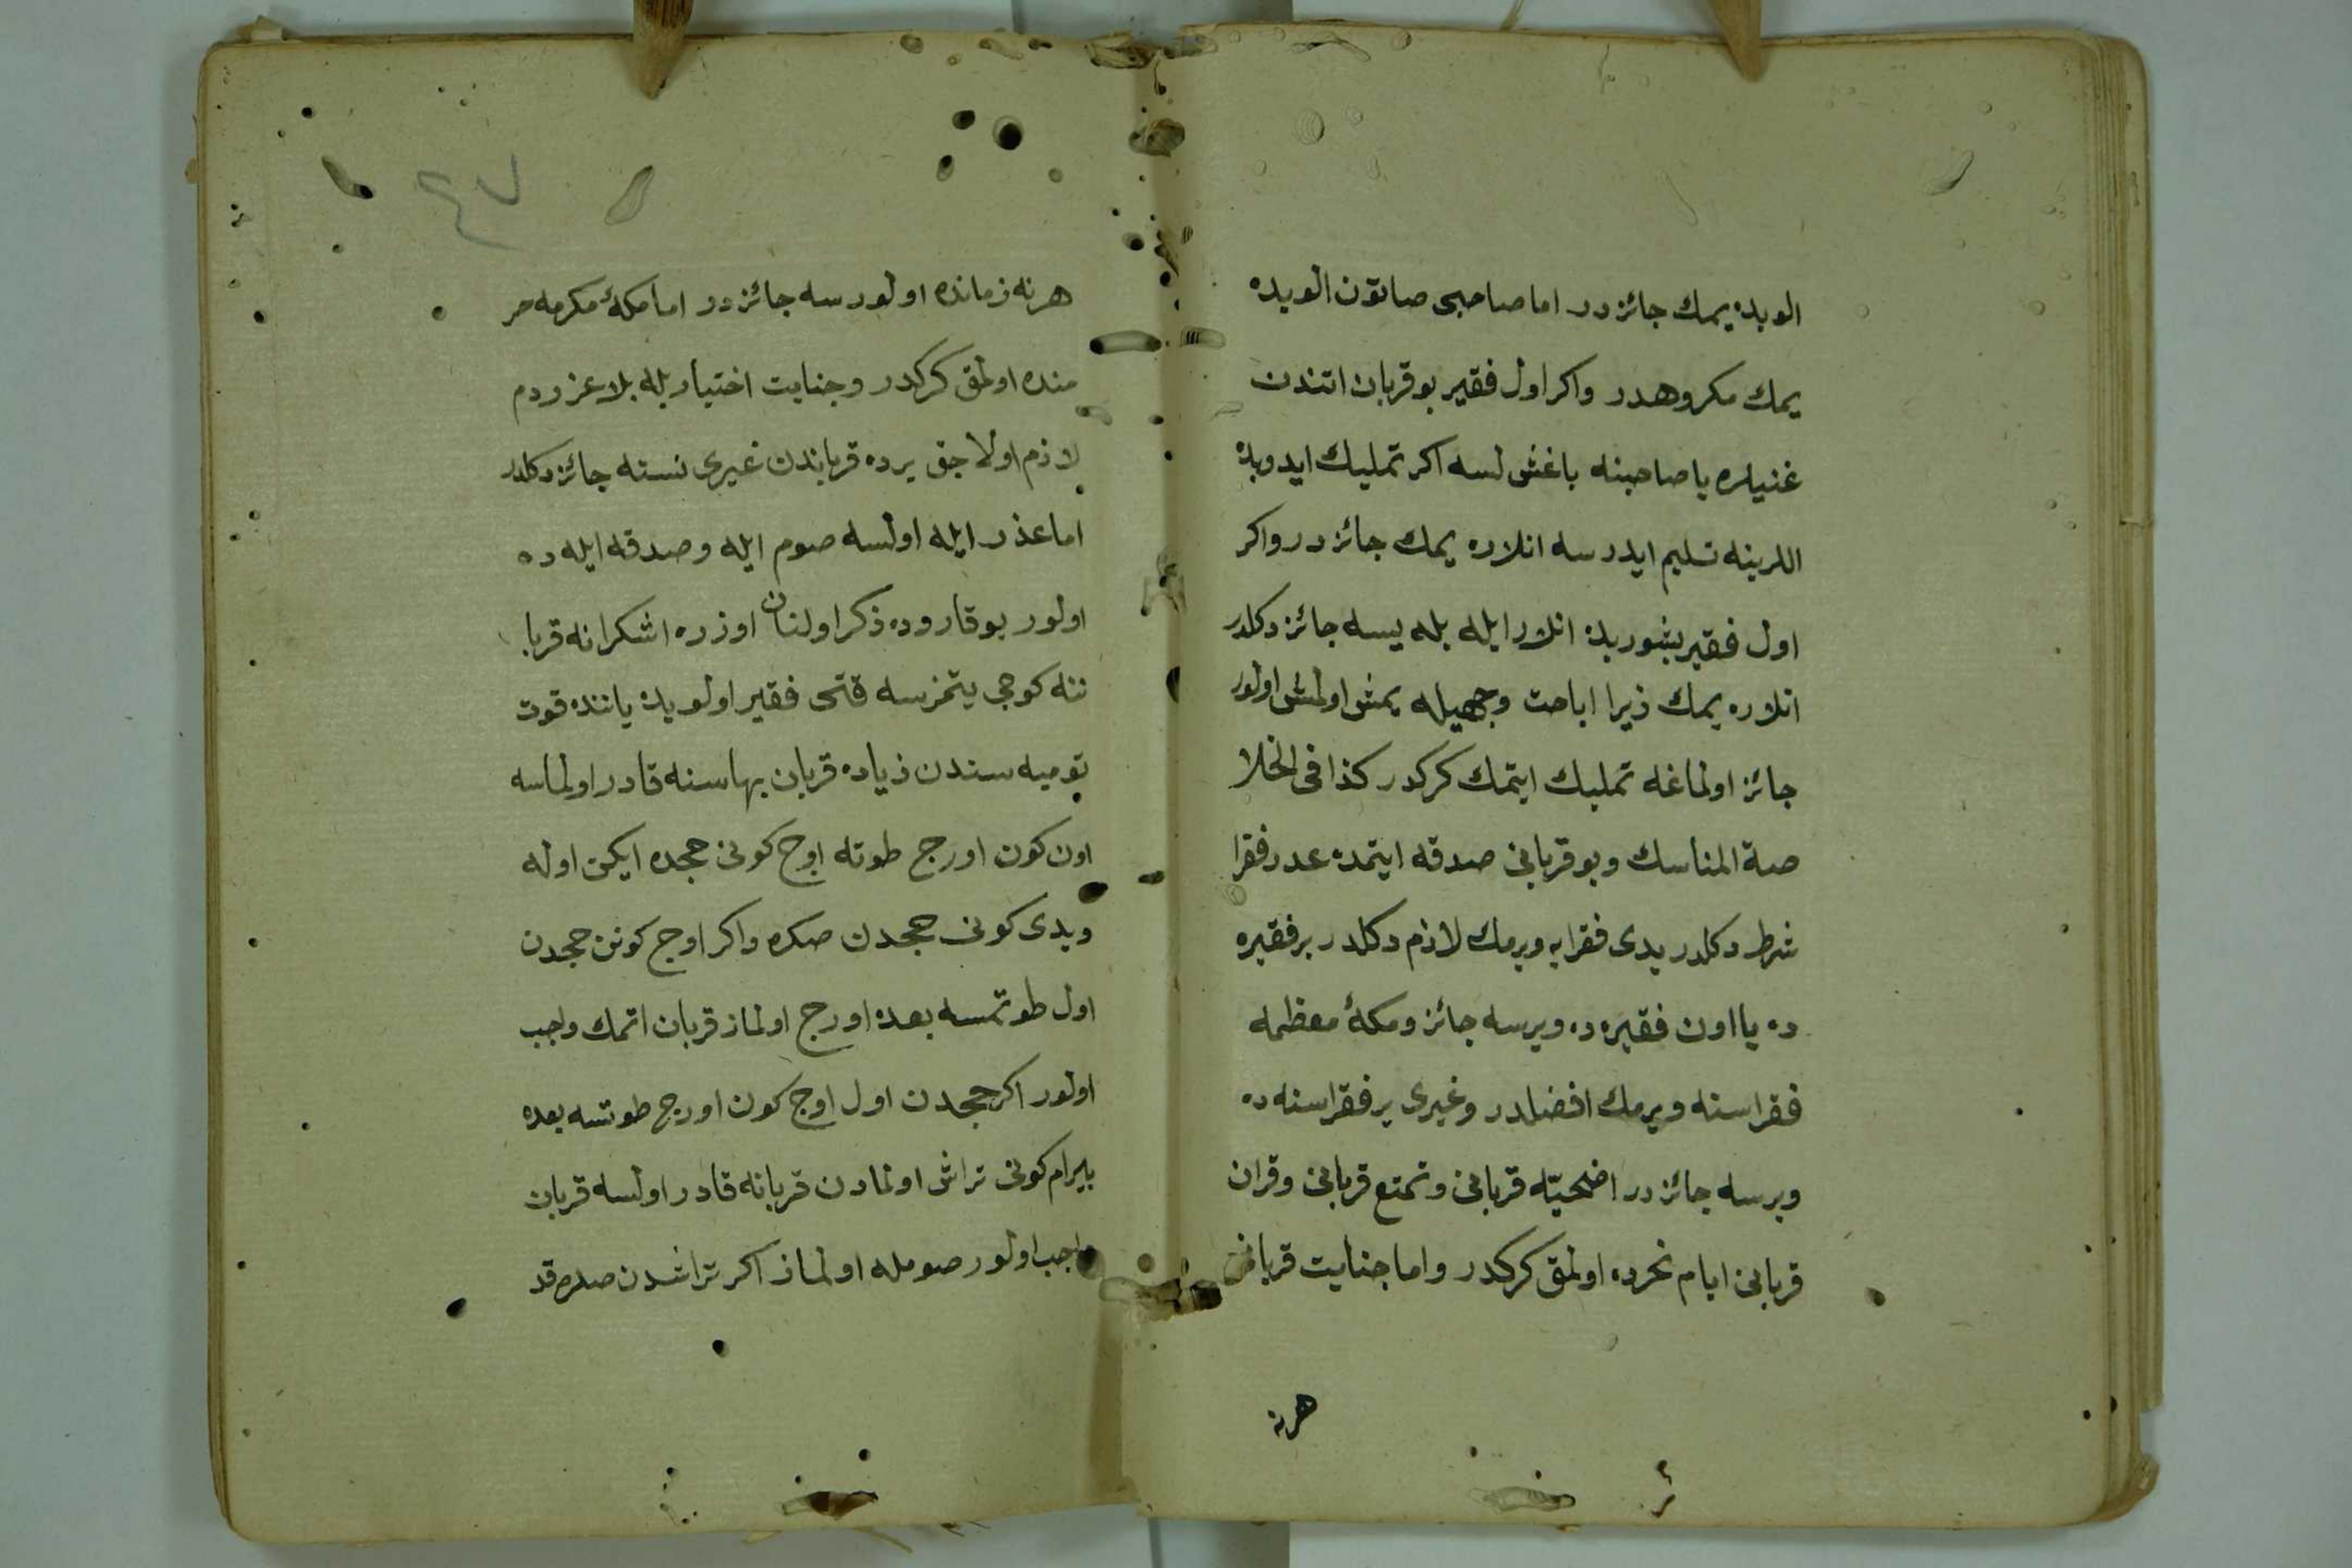 الوبده يمك جائزدر اما صاحبى صاتون الوبده
يمك مكروهدر واكر اول فقير بو قربان اتندن
غنيلره يا صاحبنه باغشلسه اكر تمليك ايدوبده
اللرينه تسليم ايدرسه انلاره يمك جائزدر واكر
اول فقير بشوربده انلار ايله بله يسه جائز دكلدر
انلاره يمك زيرا اباحت وجهيله يمش اولمش اولور
جائز اولماغه تمليك ايتمك كركدر كذا فى الخلا
صة المناسك وبو قربانى صدقه ايتمده عدد فقرا
شرط دكلدر يدى فقرايه ويرمك لازم دكلدر بر فقيره
ده يا اون فقيره ده ويرسه جائز ومكۀ معظمه
فقراسنه ويرمك افضلدر وغيرى ير فقراسنه ده
ويرسه جائزدر اضحيّه قربانى وتمتع قربانى وقران
قربانى ايام نحرده اولمق كركدر واما جنايت قربانى
هرنه
٤٧
هرنه زمانده اولورسه جائزدر اما مكۀ مكرمه حر
منده اولمق كركدر وجنايت اختياريله بلا عزر دم
لازم اولاجق يرده قرباندن غيرى نسنه جائز دكلدر
اما عذر ايله اولسه صوم ايله وصدقه ايله ده
اولور بوقاروده ذكر اولنان اوزره اشكرانه قربا
ننه كوجى يتمزسه قتى فقير اولوبده ياننده قوت
يوميه سندن زياده قربان بهاسنه قادر اولماسه
اون كون اورج طوته اوج كونى حجده ايكن اوله
ويدى كونى حجدن صكره واكر اوج كونن حجدن
اول طوتمسه بعده اورج اولماز قربان اتمك واجب
اولور اكر حجدن اول اوج كون اورج طوتسه بعده
بايرام كونى تراش اولمادن قربانه قادر اولسه قربان
واجب اولور صومله اولماز اكر تراشدن صكره قد